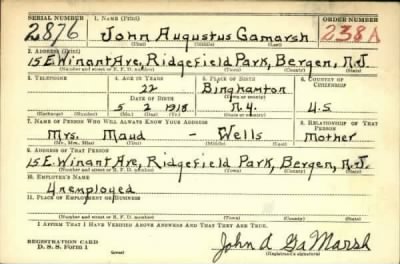 SERIAL NUMBER 1. NAME (Print) ORDER NUMBER
2876 John Augustus Gamarsh 238A
(First) (Middle) (Last)
2. ADDRESS (Print)
15 E. Winant Ave, Ridgefield Park, Bergen, N.J.
(Number and street or R. F. D. number) (Town) (County) (State)
3. TELEPHONE 4. AGE IN YEARS 5. PLACE OF BIRTH 6. COUNTRY OF CITIZENSHIP
22 Binghamton
DATE OF BIRTH (Town or county)
5 2 1918 N.Y. U.S.
(Exchange) (Number) (Mo.) (Day) (Yr.) (State or country)
7. NAME OF PERSON WHO WILL ALWAYS KNOW YOUR ADDRESS 8. RELATIONSHIP OF THAT PERSON
Mrs. Maud - Wells Mother
(Mr., Mrs., Miss) (First) (Middle) (Last)
9. ADDRESS OF THAT PERSON
15 E. Winant Ave, Ridgefield Park, Bergen, N.J.
(Number and street or R. F. D. number) (Town) (County) (State)
10. EMPLOYER'S NAME
Unemployed
11. PLACE OF EMPLOYMENT OR BUSINESS
(Number and street or R. F. D. number) (Town) (County) (State)
I AFFIRM THAT I HAVE VERIFIED ABOVE ANSWERS AND THAT THEY ARE TRUE.
REGISTRATION CARD
D. S. S. Form 1 John A. GaMarsh
(over) (Registrant's signature)